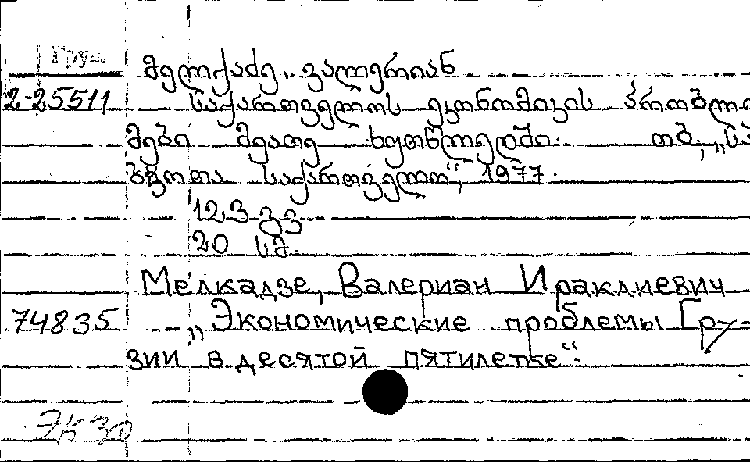 Груз.
მელქაძე, ვალერიან
2-25511 საქართველოს ეკონომიკის პრობლე
მები მეათე ხუთწლედში. თბ., „სა
ბჭოთა საქართველო“, 1977.
123 გვ.
20 სმ.
Мелкадзе, Валериан Ираклиевич
74835 „Экономические проблемы Гру-
зии в десятой пятилетке“.
ЭК30